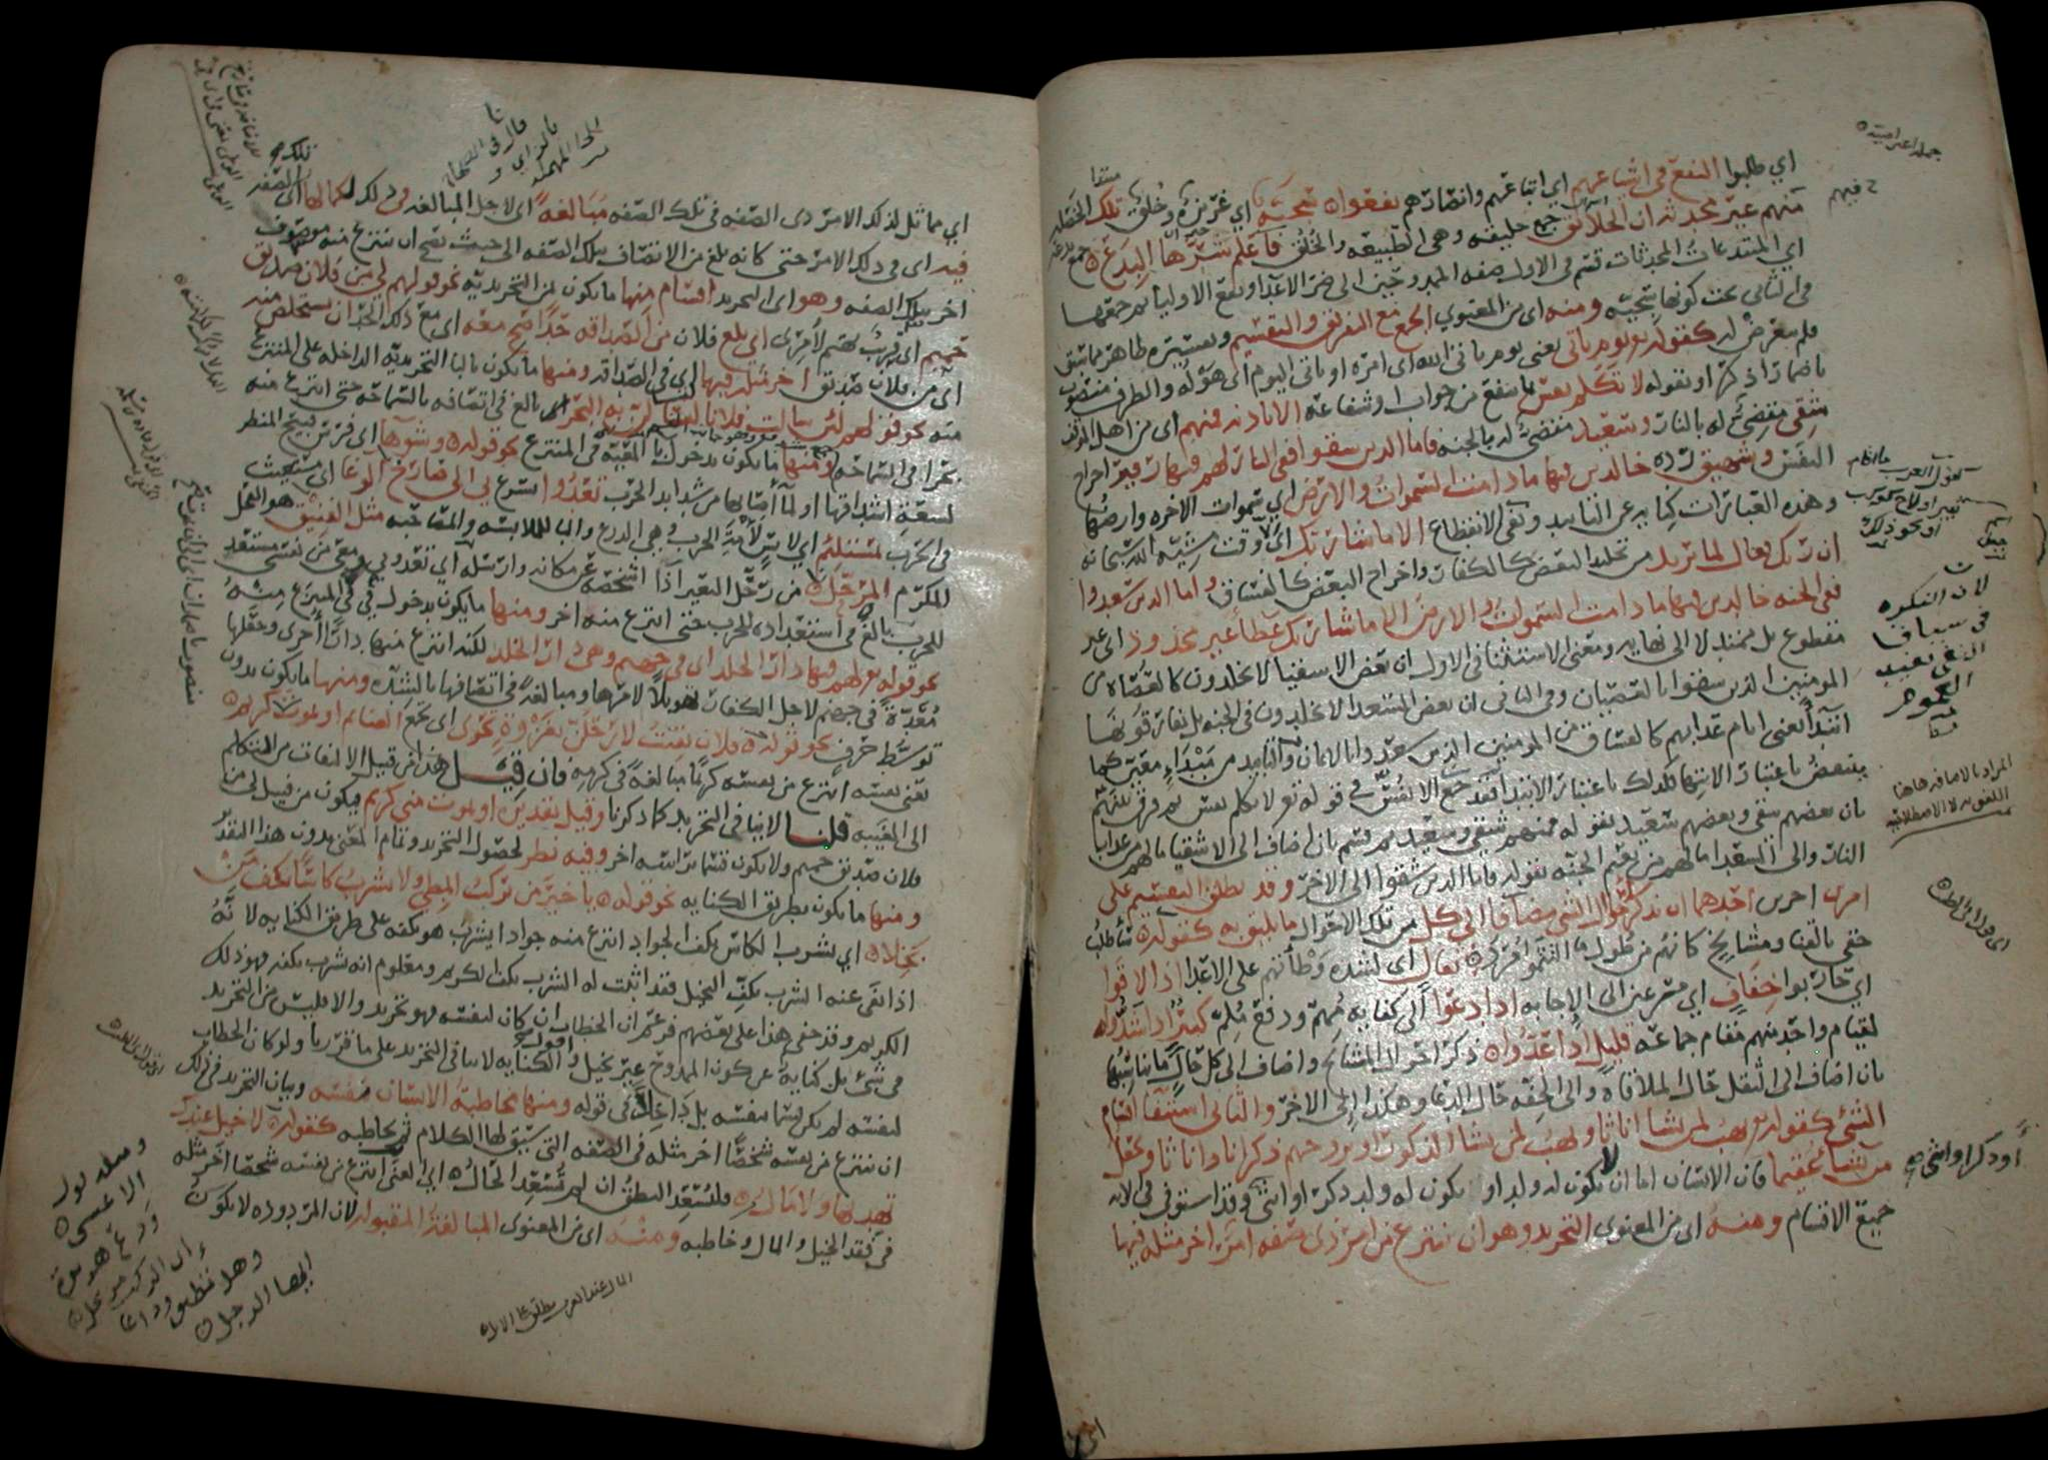 جملة اعتراضية
اي طلبوا النفع في اشياعهم اي اتباعهم وانصارهم نفعوا سجية اي غريزة وخلق تلك الخصلة
منهم غير محدثة ان الخلائق جمع خليقه وهي الطبيعه والخلق فاعلم شرها البدع جمع بدعه
اي المبتدعات المحدثات قسم في الاول صفه الممدوحين الى ضر الاعدا ونفع الاوليا ثم جمعها
في الثاني تحت كونها سجيه ومنه اي من المعنوي الجمع مع التفريق والتقسيم وتفسيره ظاهر مما سبق
فلم يتعرض له كقوله تع يوم ياتي يعني يوم ياتي الله اي امره او ياتي اليوم اي هوله والظرف منصوب
باضمار اذكر او بقوله لا تكلم نفس بما ينفع من جواب او شفاعه الا باذنه فمنهم اي من اهل الموقف
شقي مقضي له بالنار وسعيد مقضي له بالجنه فاما الذين شقوا ففي النار لهم فيها زفير اخراج
النفس وشهيق رده خالدين فيها ما دامت السموات والارض اي سموات الاخره وارضها
وهذه العبارات كنايه عن التابيد ونفي الانقطاع الا ما شا ربك اي الا وقت مشيه الله سبحانه
ان ربك فعال لما يريد من تخليد البعض كالكفار واخراج البعض كالفساق واما الذين سعدوا
ففي الجنه خالدين فيها ما دامت السموات والارض الا ما شا ربك عطا غير مجذوذ اي غير
مقطوع بل ممتد لا الى نهايه ومعنى الاستثنا في الاول ان بعض الاشقيا لا يخلدون كالعصاه من
المومنين الذين شقوا بالعصيان وفي الثاني ان بعض السعدا لا يخلدون في الجنه بل يفارقونها
ابتدا يعني ايام عذابهم كالفساق من المومنين الذين سعدوا بالايمان والتابيد من مبداء معين كما
ينتقض باعتبار الانتها فكذلك باعتبار الابتدا فقد جمع الانفس في قوله تع لا تكلم نفس ثم فرق بينهم
بان بعضهم شقي وبعضهم سعيد بقوله فمنهم شقي وسعيد ثم قسم بان اضاف الى الاشقيا ما لهم من عذاب
النار والى السعدا ما لهم من نعيم الجنه بقوله فاما الذين شقوا الى الاخر وقد يطلق التقسيم على
امرين اخرين احدهما ان تذكر احوال الشي مضافا الى كل من تلك الاحوال ما يليق به كقوله ساطلب
حقي بالقنا ومشايخ كانهم من طول ما التثموا مرد ثقال اي لشده وطاتهم على الاعدا اذا لاقوا
اي حاربوا خفاف اي مسرعين الى الاجابه اذا دعوا الى كفايه مهم ودفع ملم كثير اذا شدوا
لقيام واحد منهم مقام جماعه قليل اذا عدوا ذكر احوال المشايخ واضاف الى كل حال ما يناسبها
بان اضاف الى الثقل حال الملاقاه والى الخفه حال الدعا وهكذا الى الاخر والثاني استيفا اقسام
الشي كقوله تع يهب لمن يشا اناثا ويهب لمن يشا الذكور او يزوجهم ذكرانا واناثا ويجعل
من يشا عقيما فان الانسان اما ان لا يكون له ولد او يكون له ولد ذكر او انثى وقد استوفى في الايه
جميع الاقسام ومنه اي من المعنوي التجريد وهو ان ينتزع من امر ذي صفه امر اخر مثله فيها
لان النكره
في سياق
النفي تفيد
العموم
المراد بالاضافه هاهنا
اللغويه لا الاصطلاحيه
او ذكر او انثى
اي مماثل لذلك الامر ذي الصفه في تلك الصفه مبالغة اي لاجل المبالغه في ذلك لكمالها اي
فيه اي في ذلك الامر حتى كانه بلغ من الاتصاف بتلك الصفه الى حيث يصح ان ينتزع منه موصوف
اخر بتلك الصفه وهو اي التجريد اقسام منها ما يكون بمن التجريديه نحو قولهم لي من فلان صديق
حميم اي قريب يهتم لامره اي بلغ فلان من الصداقه حدا صح معه اي مع ذلك الحد ان يستخلص منه
اي من فلان صديق اخر مثله فيها اي في الصداقه ومنها ما يكون بالبا التجريديه الداخله على المنتزع
منه نحو قولهم لئن سالت فلانا لتسالن به البحر بالغ في اتصافه بالسماحه حتى انتزع منه
بحرا في السماحه ومنها ما يكون بدخول با المعيه في المنتزع نحو قوله وشوها اي فرس قبيح المنظر
لسعه اشداقها او لما اصابها من شدايد الحرب تعدوا تسرع بي الى صارخ الوغا اي مستغيث
في الحرب بمستلئم اي لابس لأمة الحرب وهي الدرع والبا للملابسه والمصاحبه مثل الفنيق هو الفحل
المكرم المرحل من رحل البعير اذا اشخصه عن مكانه وارسله اي تعدو بي ومعي من نفسي مستعد
للحرب بالغ في استعداده للحرب حتى انتزع منه اخر ومنها ما يكون بدخول في في المنتزع منه
نحو قوله تع لهم فيها دار الخلد اي في جهنم وهي دار الخلد لكنه انتزع منها دارا اخرى وجعلها
معدة في جهنم لاجل الكفار تهويلا لامرها ومبالغة في اتصافها بالشده ومنها ما يكون بدون
توسط حرف نحو قوله فلان بقيت لارحلن بغزوة تحوي اي تجمع الغنايم او يموت كريم
يعني نفسه انتزع من نفسه كريما مبالغة في كرمه فان قيل هذا من قبيل الالتفات من المتكلم
الى الغيبه قلنا لا ينافي التجريد كما ذكرنا وقيل تقديره او يموت مني كريم فيكون من قبيل لي من
فلان صديق حميم ولا يكون قسما براسه اخر وفيه نظر لحصول التجريد وتمام المعنى بدون هذا التقدير
ومنها ما يكون بطريق الكنايه نحو قوله يا خير من يركب المطي ولا يشرب كاسا بكف من
بخلا اي يشرب الكاس بكف الجواد انتزع منه جوادا يشرب هو بكفه على طريق الكنايه لانه
اذا نفى عنه الشرب بكف البخيل فقد اثبت له الشرب بكف الكريم ومعلوم انه يشرب بكفه فهو ذلك
الكريم وقد خفي هذا على بعضهم فزعم ان الخطاب ان كان لنفسه فهو تجريد والا فليس من التجريد
في شي بل كناية عن كون الممدوح غير بخيل واقول الكنايه لا تنافي التجريد على ما قررنا ولو كان الخطاب
لنفسه لم يكن قسما بنفسه بل داخلا في قوله ومنها مخاطبة الانسان نفسه وبيان التجريد في ذلك
ان ينتزع من نفسه شخصا اخر مثله في الصفه التي سيق لها الكلام ثم يخاطبه كقوله لا خيل عندك
تهديها ولا مال فليسعد النطق ان لم تسعد الحال اي الغنى انتزع من نفسه شخصا اخر مثله
في فقد الخيل والمال وخاطبه ومنه اي من المعنوي المبالغة المقبوله لان المردوده لا يكون
ومثله قول
الاعشى
ودع هريرة
ان الركب مرتحل
وهل تطيق وداعا
ايها الرجل
المال عند العرب يطلق على الابل